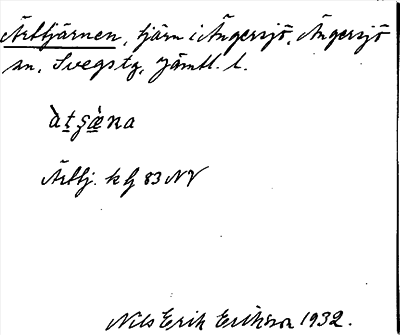 Ärttjärnen, tjärn i Ängersjö, Ängersjö
sn, Svegs tg, Jämtl. l.
Ärttj. k G 83 NV
Nils Erik Erikson 1932.